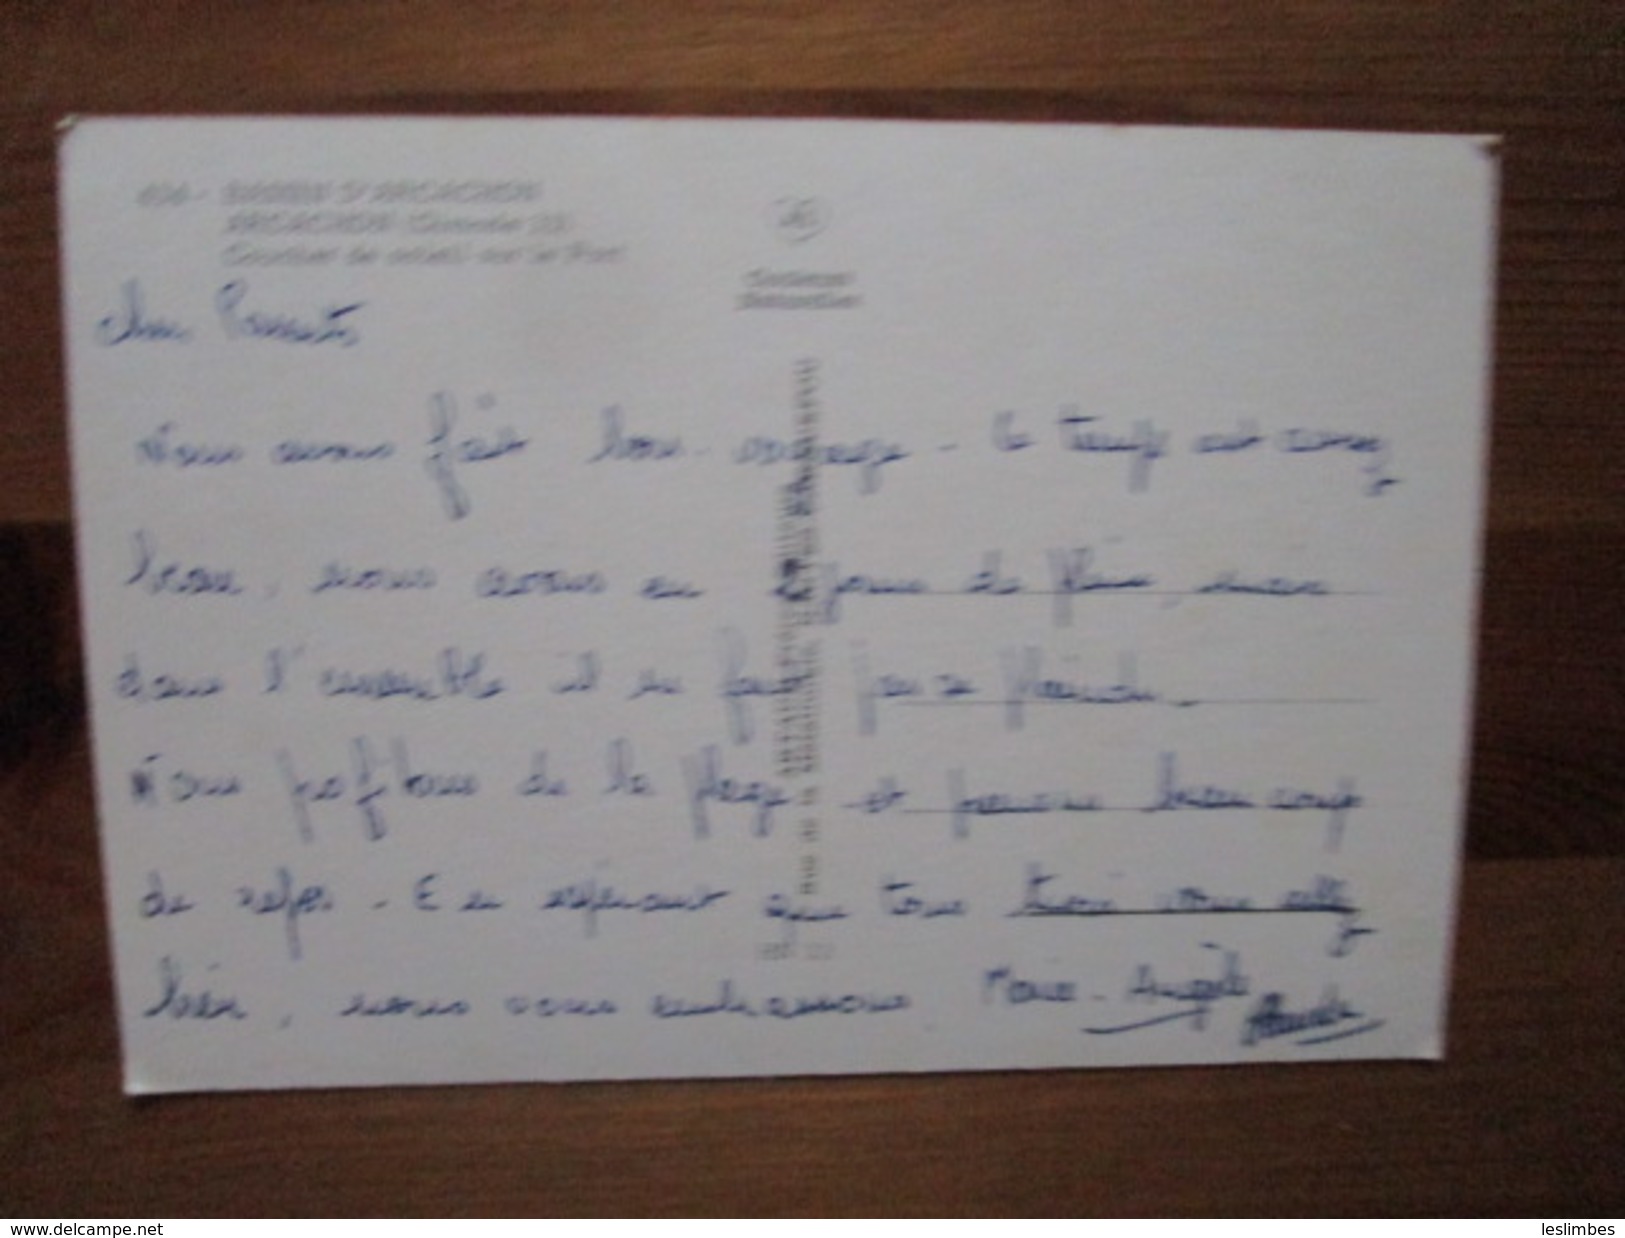 BASSIN D'ARCACHON
ARCACHON (Gironde 33)
Coucher de soleil sur le Port
Cher Parents
Nous avons fait bon voyage - le temps est assez
beau, nous avons eu jours de pluie, mais
dans l'ensemble il ne faut pas se plaindre.
Nous profitons de la plage et prenons beaucoup
de repos - En espérant que tous trois vous allez
bien, nous vous embrassons. Marie-Angèle
www.delcampe.net
leslimbes